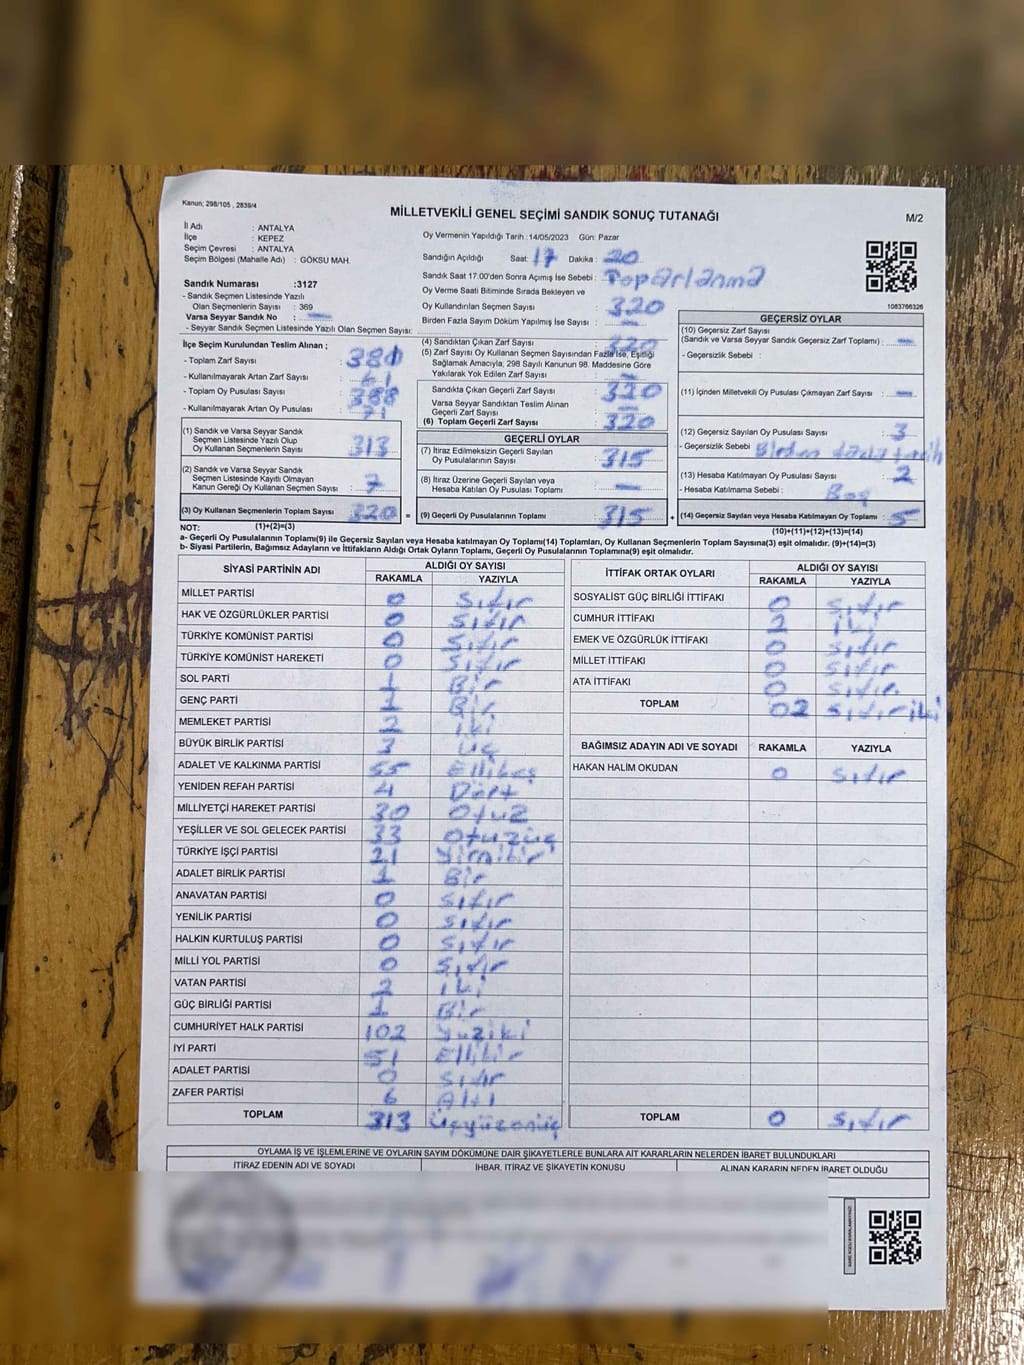 Kanun; 298/105 , 2839/4
MİLLETVEKİLİ GENEL SEÇİMİ SANDIK SONUÇ TUTANAĞI
M/2
İl Adı : ANTALYA
İlçe : KEPEZ
Seçim Çevresi : ANTALYA
Seçim Bölgesi (Mahalle Adı) : GÖKSU MAH.
Oy Vermenin Yapıldığı Tarih :14/05/2023 Gün: Pazar
Sandığın Açıldığı Saat: 17 Dakika : 20
Sandık Saat 17.00'den Sonra Açımış İse Sebebi : Toparlanma
Oy Verme Saati Bitiminde Sırada Bekleyen ve
Oy Kullandırılan Seçmen Sayısı : 320
Birden Fazla Sayım Döküm Yapılmış İse Sayısı : —
1083766326
Sandık Numarası :3127
- Sandık Seçmen Listesinde Yazılı
Olan Seçmenlerin Sayısı : 369
Varsa Seyyar Sandık No : —
- Seyyar Sandık Seçmen Listesinde Yazılı Olan Seçmen Sayısı:
İlçe Seçim Kurulundan Teslim Alınan ;
- Toplam Zarf Sayısı : 381
- Kullanılmayarak Artan Zarf Sayısı : 61
- Toplam Oy Pusulası Sayısı : 388
- Kullanılmayarak Artan Oy Pusulası : 71
(1) Sandık ve Varsa Seyyar Sandık
Seçmen Listesinde Yazılı Olup
Oy Kullanan Seçmenlerin Sayısı : 313
(2) Sandık ve Varsa Seyyar Sandık
Seçmen Listesinde Kayıtlı Olmayan
Kanun Gereği Oy Kullanan Seçmen Sayısı : 7
(3) Oy Kullanan Seçmenlerin Toplam Sayısı 320 =
(1)+(2)=(3)
(4) Sandıktan Çıkan Zarf Sayısı : 320
(5) Zarf Sayısı Oy Kullanan Seçmen Sayısından Fazla İse, Eşitliği
Sağlamak Amacıyla; 298 Sayılı Kanunun 98. Maddesine Göre
Yakılarak Yok Edilen Zarf Sayısı : —
Sandıkta Çıkan Geçerli Zarf Sayısı : 320
Varsa Seyyar Sandıktan Teslim Alınan
Geçerli Zarf Sayısı : —
(6) Toplam Geçerli Zarf Sayısı : 320
GEÇERLİ OYLAR
(7) İtiraz Edilmeksizin Geçerli Sayılan
Oy Pusulalarının Sayısı : 315
(8) İtiraz Üzerine Geçerli Sayılan veya
Hesaba Katılan Oy Pusulası Toplamı : —
(9) Geçerli Oy Pusulalarının Toplamı : 315 +
GEÇERSİZ OYLAR
(10) Geçersiz Zarf Sayısı
(Sandık ve Varsa Seyyar Sandık Geçersiz Zarf Toplamı) : —
- Geçersizlik Sebebi :
(11) İçinden Milletvekili Oy Pusulası Çıkmayan Zarf Sayısı : —
(12) Geçersiz Sayılan Oy Pusulası Sayısı : 3
- Geçersizlik Sebebi : Birden
(13) Hesaba Katılmayan Oy Pusulası Sayısı : 2
- Hesaba Katılmama Sebebi : Boş
(14) Geçersiz Sayılan veya Hesaba Katılmayan Oy Toplamı : 5
(10)+(11)+(12)+(13)=(14)
NOT:
a- Geçerli Oy Pusulalarının Toplamı(9) ile Geçersiz Sayılan veya Hesaba katılmayan Oy Toplamı(14) Toplamları, Oy Kullanan Seçmenlerin Toplam Sayısına(3) eşit olmalıdır. (9)+(14)=(3)
b- Siyasi Partilerin, Bağımsız Adayların ve İttifakların Aldığı Ortak Oyların Toplamı, Geçerli Oy Pusulalarının Toplamına(9) eşit olmalıdır.
SİYASİ PARTİNİN ADI ALDIĞI OY SAYISI
RAKAMLA YAZIYLA
MİLLET PARTİSİ 0 Sıfır
HAK VE ÖZGÜRLÜKLER PARTİSİ 0 Sıfır
TÜRKİYE KOMÜNİST PARTİSİ 0 Sıfır
TÜRKİYE KOMÜNİST HAREKETİ 0 Sıfır
SOL PARTİ 1 Bir
GENÇ PARTİ 1 Bir
MEMLEKET PARTİSİ 2 iki
BÜYÜK BİRLİK PARTİSİ 3 üç
ADALET VE KALKINMA PARTİSİ 55 Ellibeş
YENİDEN REFAH PARTİSİ 4 Dört
MİLLİYETÇİ HAREKET PARTİSİ 30 Otuz
YEŞİLLER VE SOL GELECEK PARTİSİ 33 Otuzüç
TÜRKİYE İŞÇİ PARTİSİ 21 Yirmibir
ADALET BİRLİK PARTİSİ 1 Bir
ANAVATAN PARTİSİ 0 Sıfır
YENİLİK PARTİSİ 0 Sıfır
HALKIN KURTULUŞ PARTİSİ 0 Sıfır
MİLLİ YOL PARTİSİ 0 Sıfır
VATAN PARTİSİ 2 iki
GÜÇ BİRLİĞİ PARTİSİ 1 Bir
CUMHURİYET HALK PARTİSİ 102 Yüziki
İYİ PARTİ 51 Ellibir
ADALET PARTİSİ 0 Sıfır
ZAFER PARTİSİ 6 Altı
TOPLAM 313 Üçyüzonüç
İTTİFAK ORTAK OYLARI ALDIĞI OY SAYISI
RAKAMLA YAZIYLA
SOSYALİST GÜÇ BİRLİĞİ İTTİFAKI 0 Sıfır
CUMHUR İTTİFAKI 2 iki
EMEK VE ÖZGÜRLÜK İTTİFAKI 0 Sıfır
MİLLET İTTİFAKI 0 Sıfır
ATA İTTİFAKI 0 Sıfır
TOPLAM 02 Sıfıriki
BAĞIMSIZ ADAYIN ADI VE SOYADI RAKAMLA YAZIYLA
HAKAN HALİM OKUDAN 0 Sıfır
TOPLAM 0 Sıfır
OYLAMA İŞ VE İŞLEMLERİNE VE OYLARIN SAYIM DÖKÜMÜNE DAİR ŞİKAYETLERLE BUNLARA AİT KARARLARIN NELERDEN İBARET BULUNDUKLARI
İTİRAZ EDENİN ADI VE SOYADI İHBAR, İTİRAZ VE ŞİKAYETİN KONUSU ALINAN KARARIN NEDEN İBARET OLDUĞU